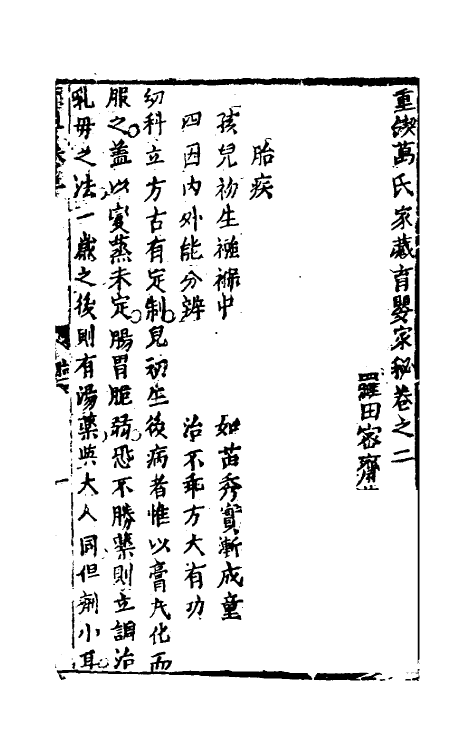 重鍥萬氏家藏育嬰家秘卷之二
羅田密齋
胎疾
孩兒初生襁褓中　如苗秀實漸成童
四因內外能分辨　治不乖方大有功
幼科立方古有定制兒初生後病者惟以膏丸化而
服之蓋以變蒸未定腸胃脆弱恐不勝藥則立調治
乳母之法一歲之後則有湯藥與大人同但劑小耳